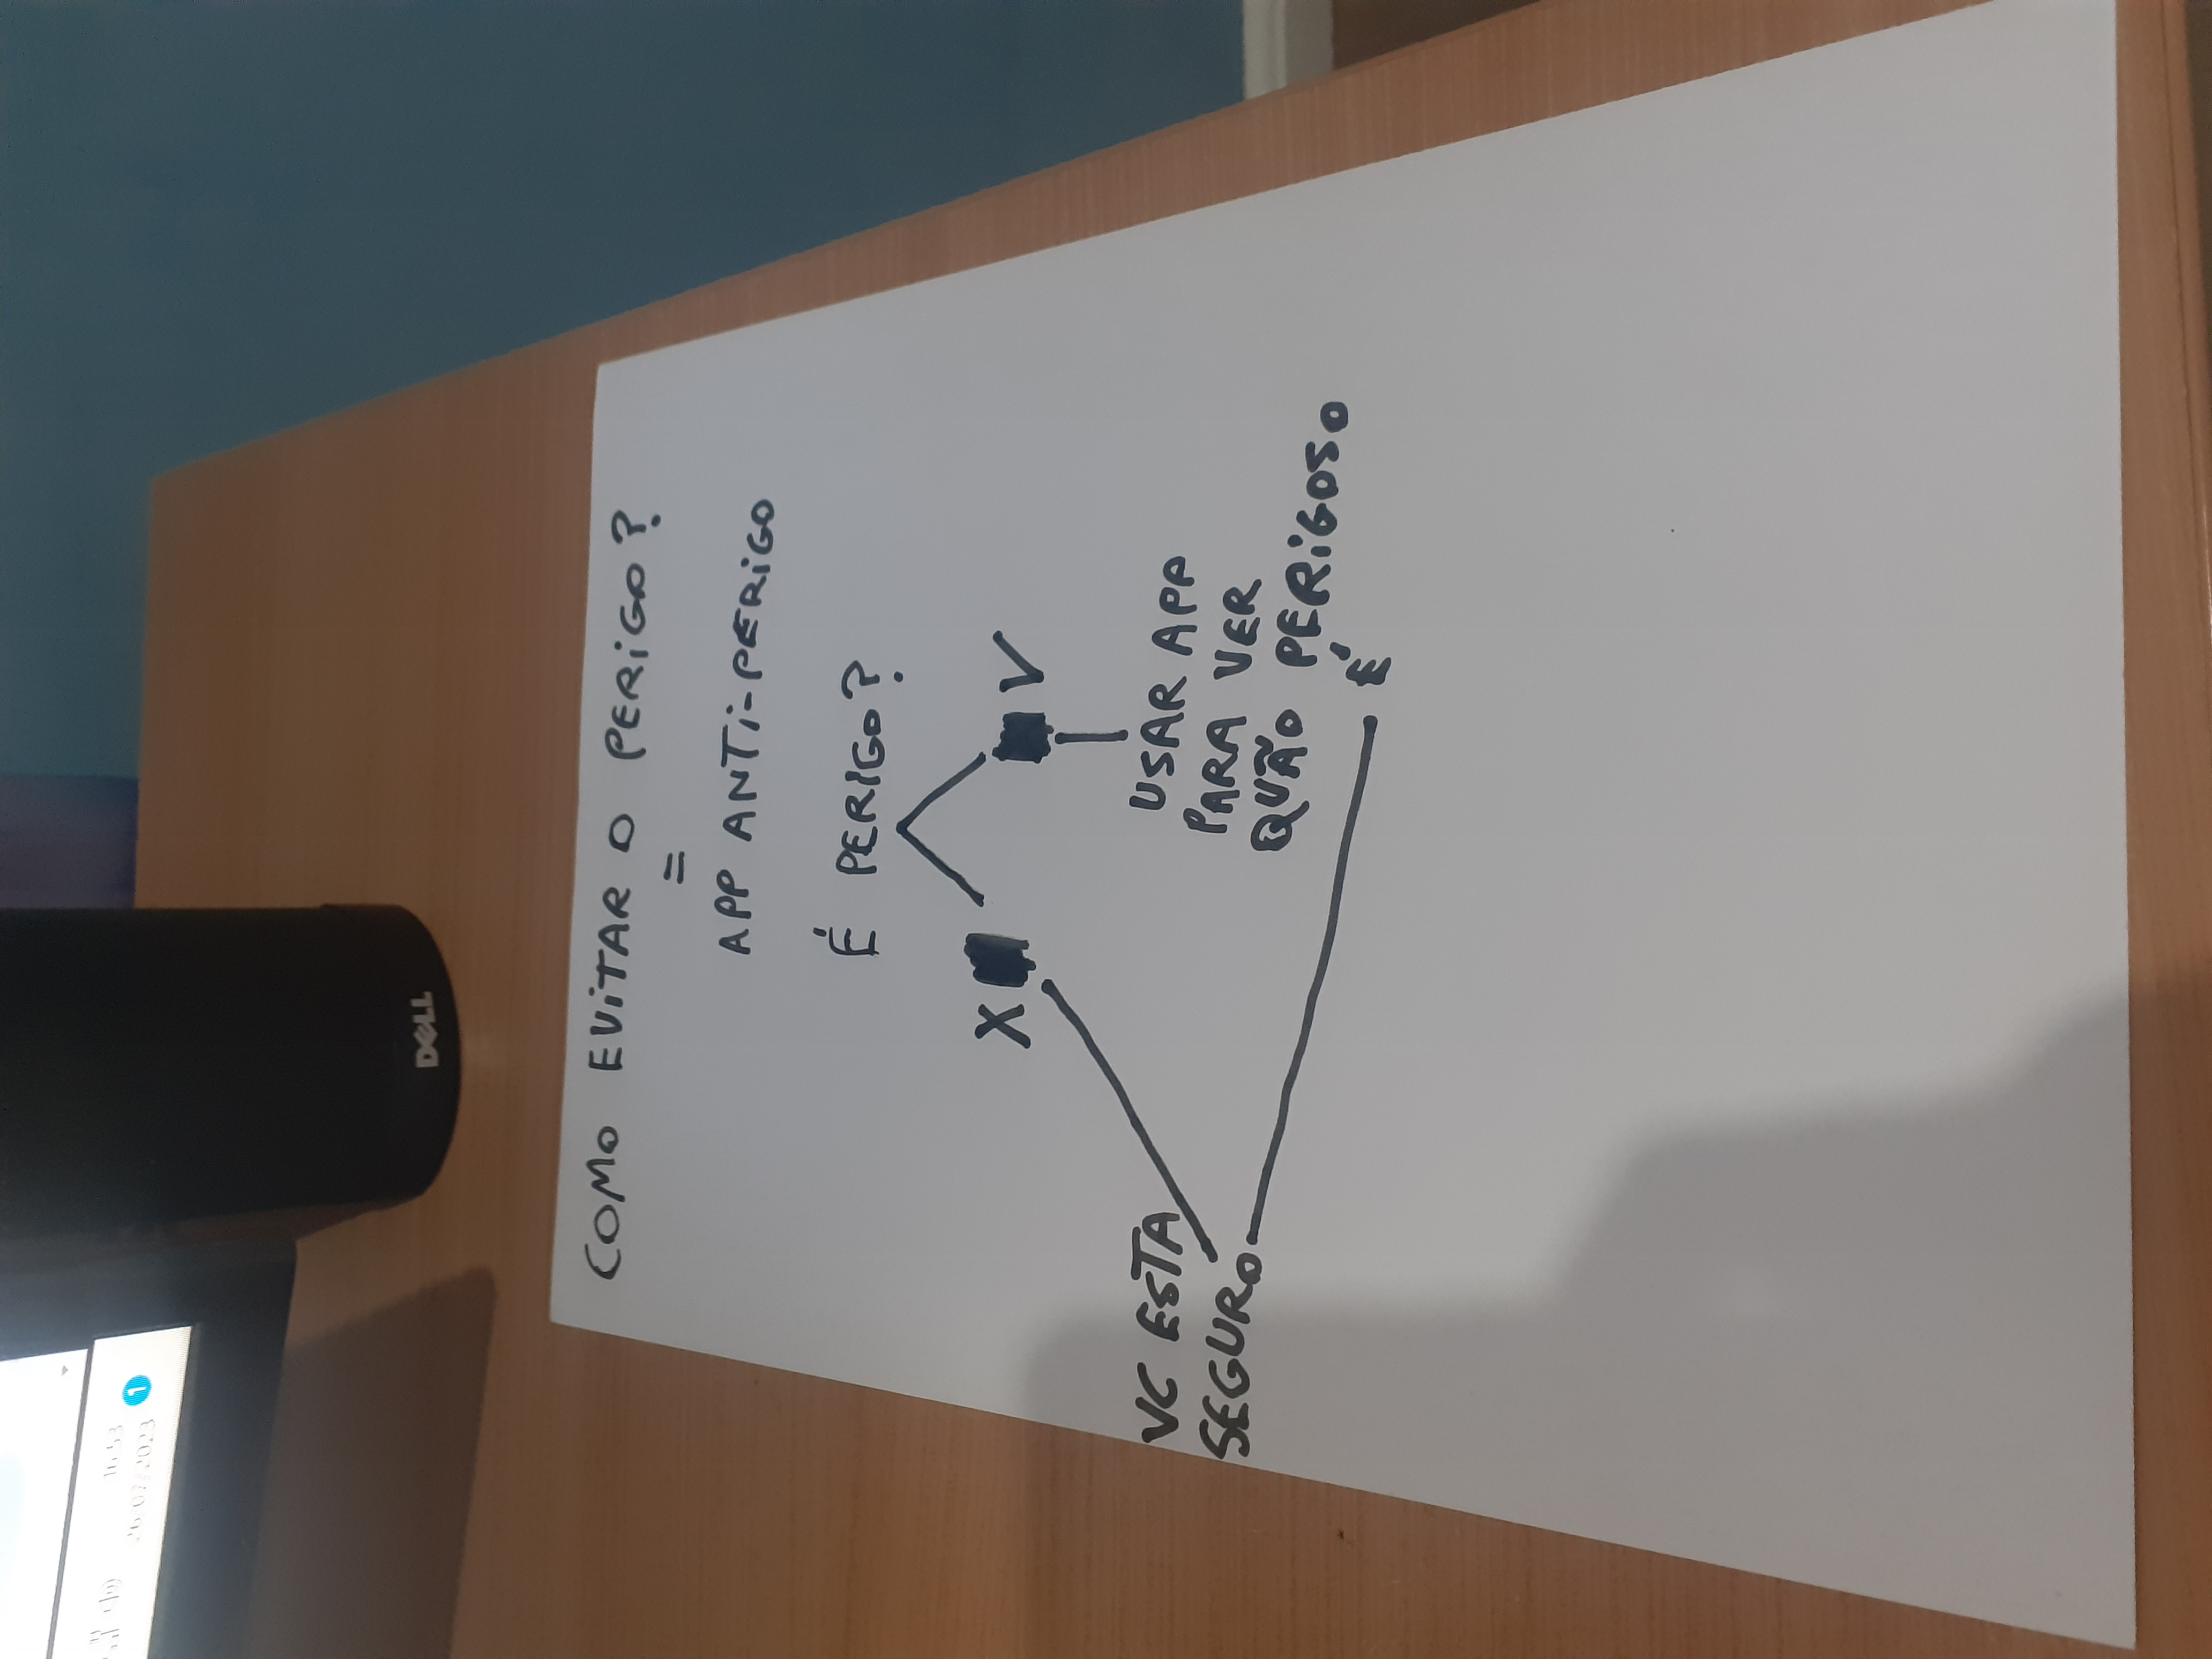 16:53
26/07/2023
1
DELL
COMO EViTAR O PERiGO?
=
APP ANTi-PERiGO
É PERIGO?
X V
VC ESTA
SEGURO
USAR APP
PARA VER
QUÃO PERiGOSO
É